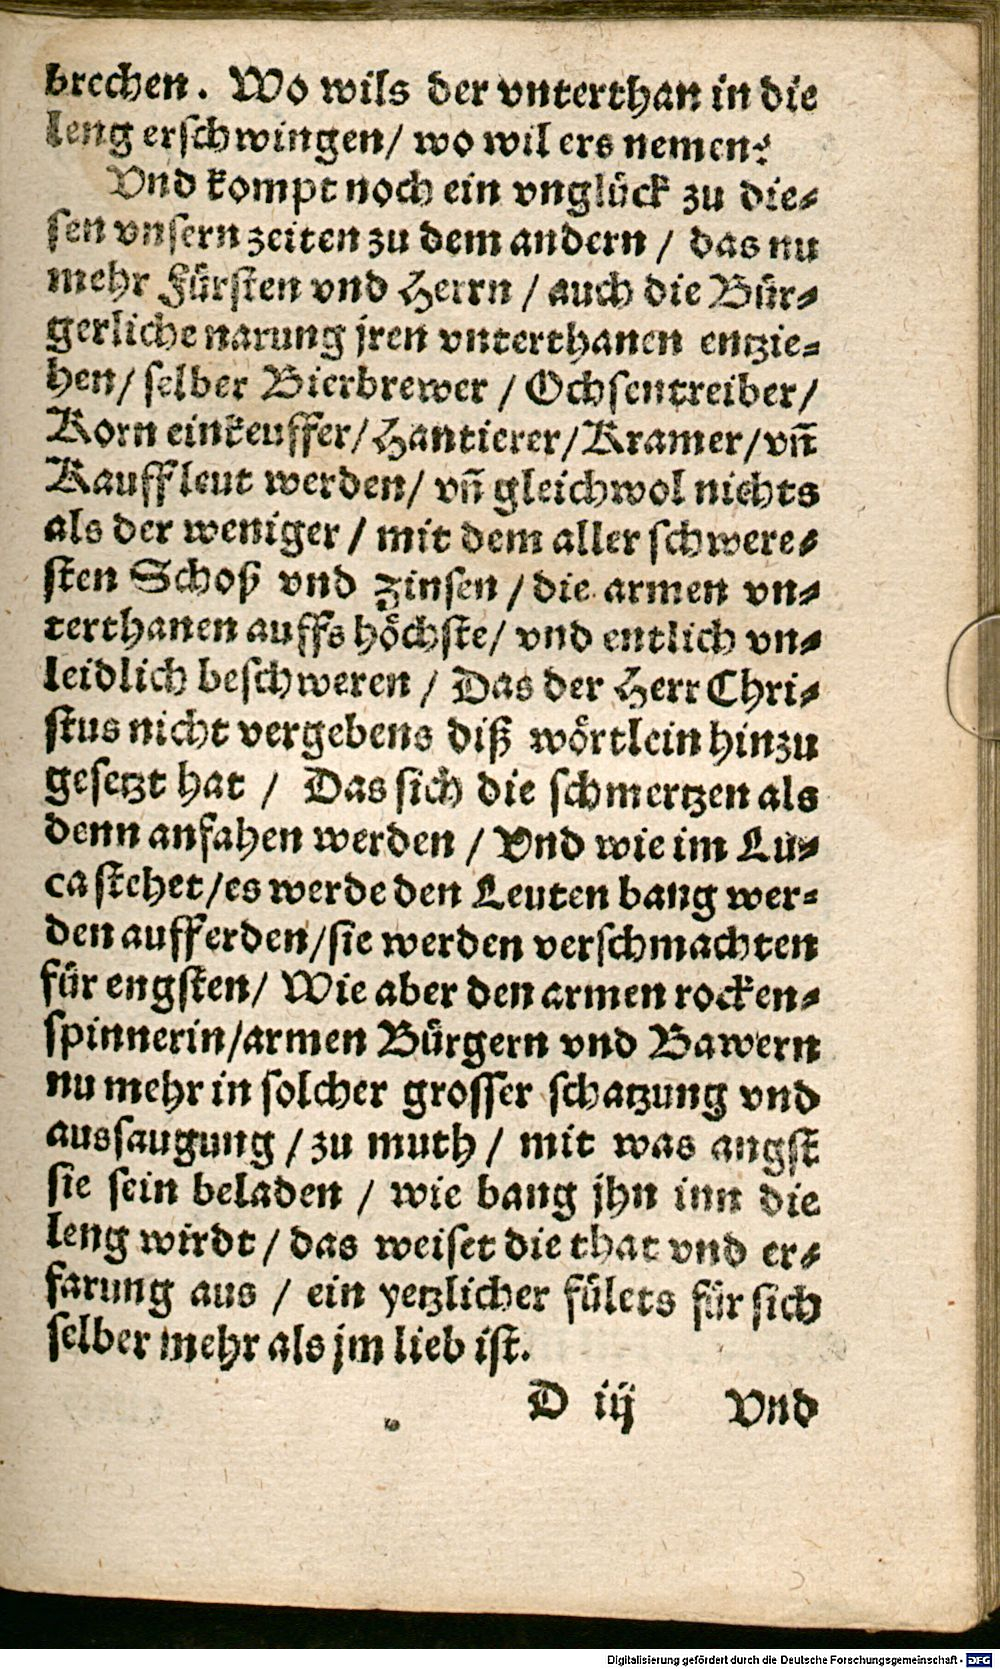 brechen. Wo wils der vnterthan in die
leng erschwingen/ wo wil ers nemen?
Vnd kompt noch ein vnglück zu die⸗
sen vnsern zeiten zu dem andern / das nu
mehr Fürsten vnd Herrn / auch die Bür⸗
gerliche narung jren vnterthanen entzie⸗
hen/ selber Bierbrewer / Ochsentreiber/
Korn einkeuffer/ Hantierer/ Kramer/ vñ
Kauffleut werden/ vñ gleichwol nichts
als der weniger / mit dem aller schwere⸗
sten Schoß vnd zinsen / die armen vn⸗
terthanen auffs höchste/ vnd entlich vn⸗
leidlich beschweren / Das der Herr Chri⸗
stus nicht vergebens diß wörtlein hinzu
gesetzt hat / Das sich die schmertzen als
denn anfahen werden / Vnd wie im Lu⸗
ca stehet/ es werde den Leuten bang wer⸗
den auff erden/ sie werden verschmachten
für engsten/ Wie aber den armen rocken⸗
spinnerin/ armen Bürgern vnd Bawern
nu mehr in solcher grosser schatzung vnd
aussaugung / zu muth / mit was angst
sie sein beladen / wie bang jhn inn die
leng wirdt / das weiset die that vnd er⸗
farung aus / ein yetzlicher fülets für sich
selber mehr als jm lieb ist.
D iij Vnd
Digitalisierung gefördert durch die Deutsche Forschungsgemeinschaft - DFG